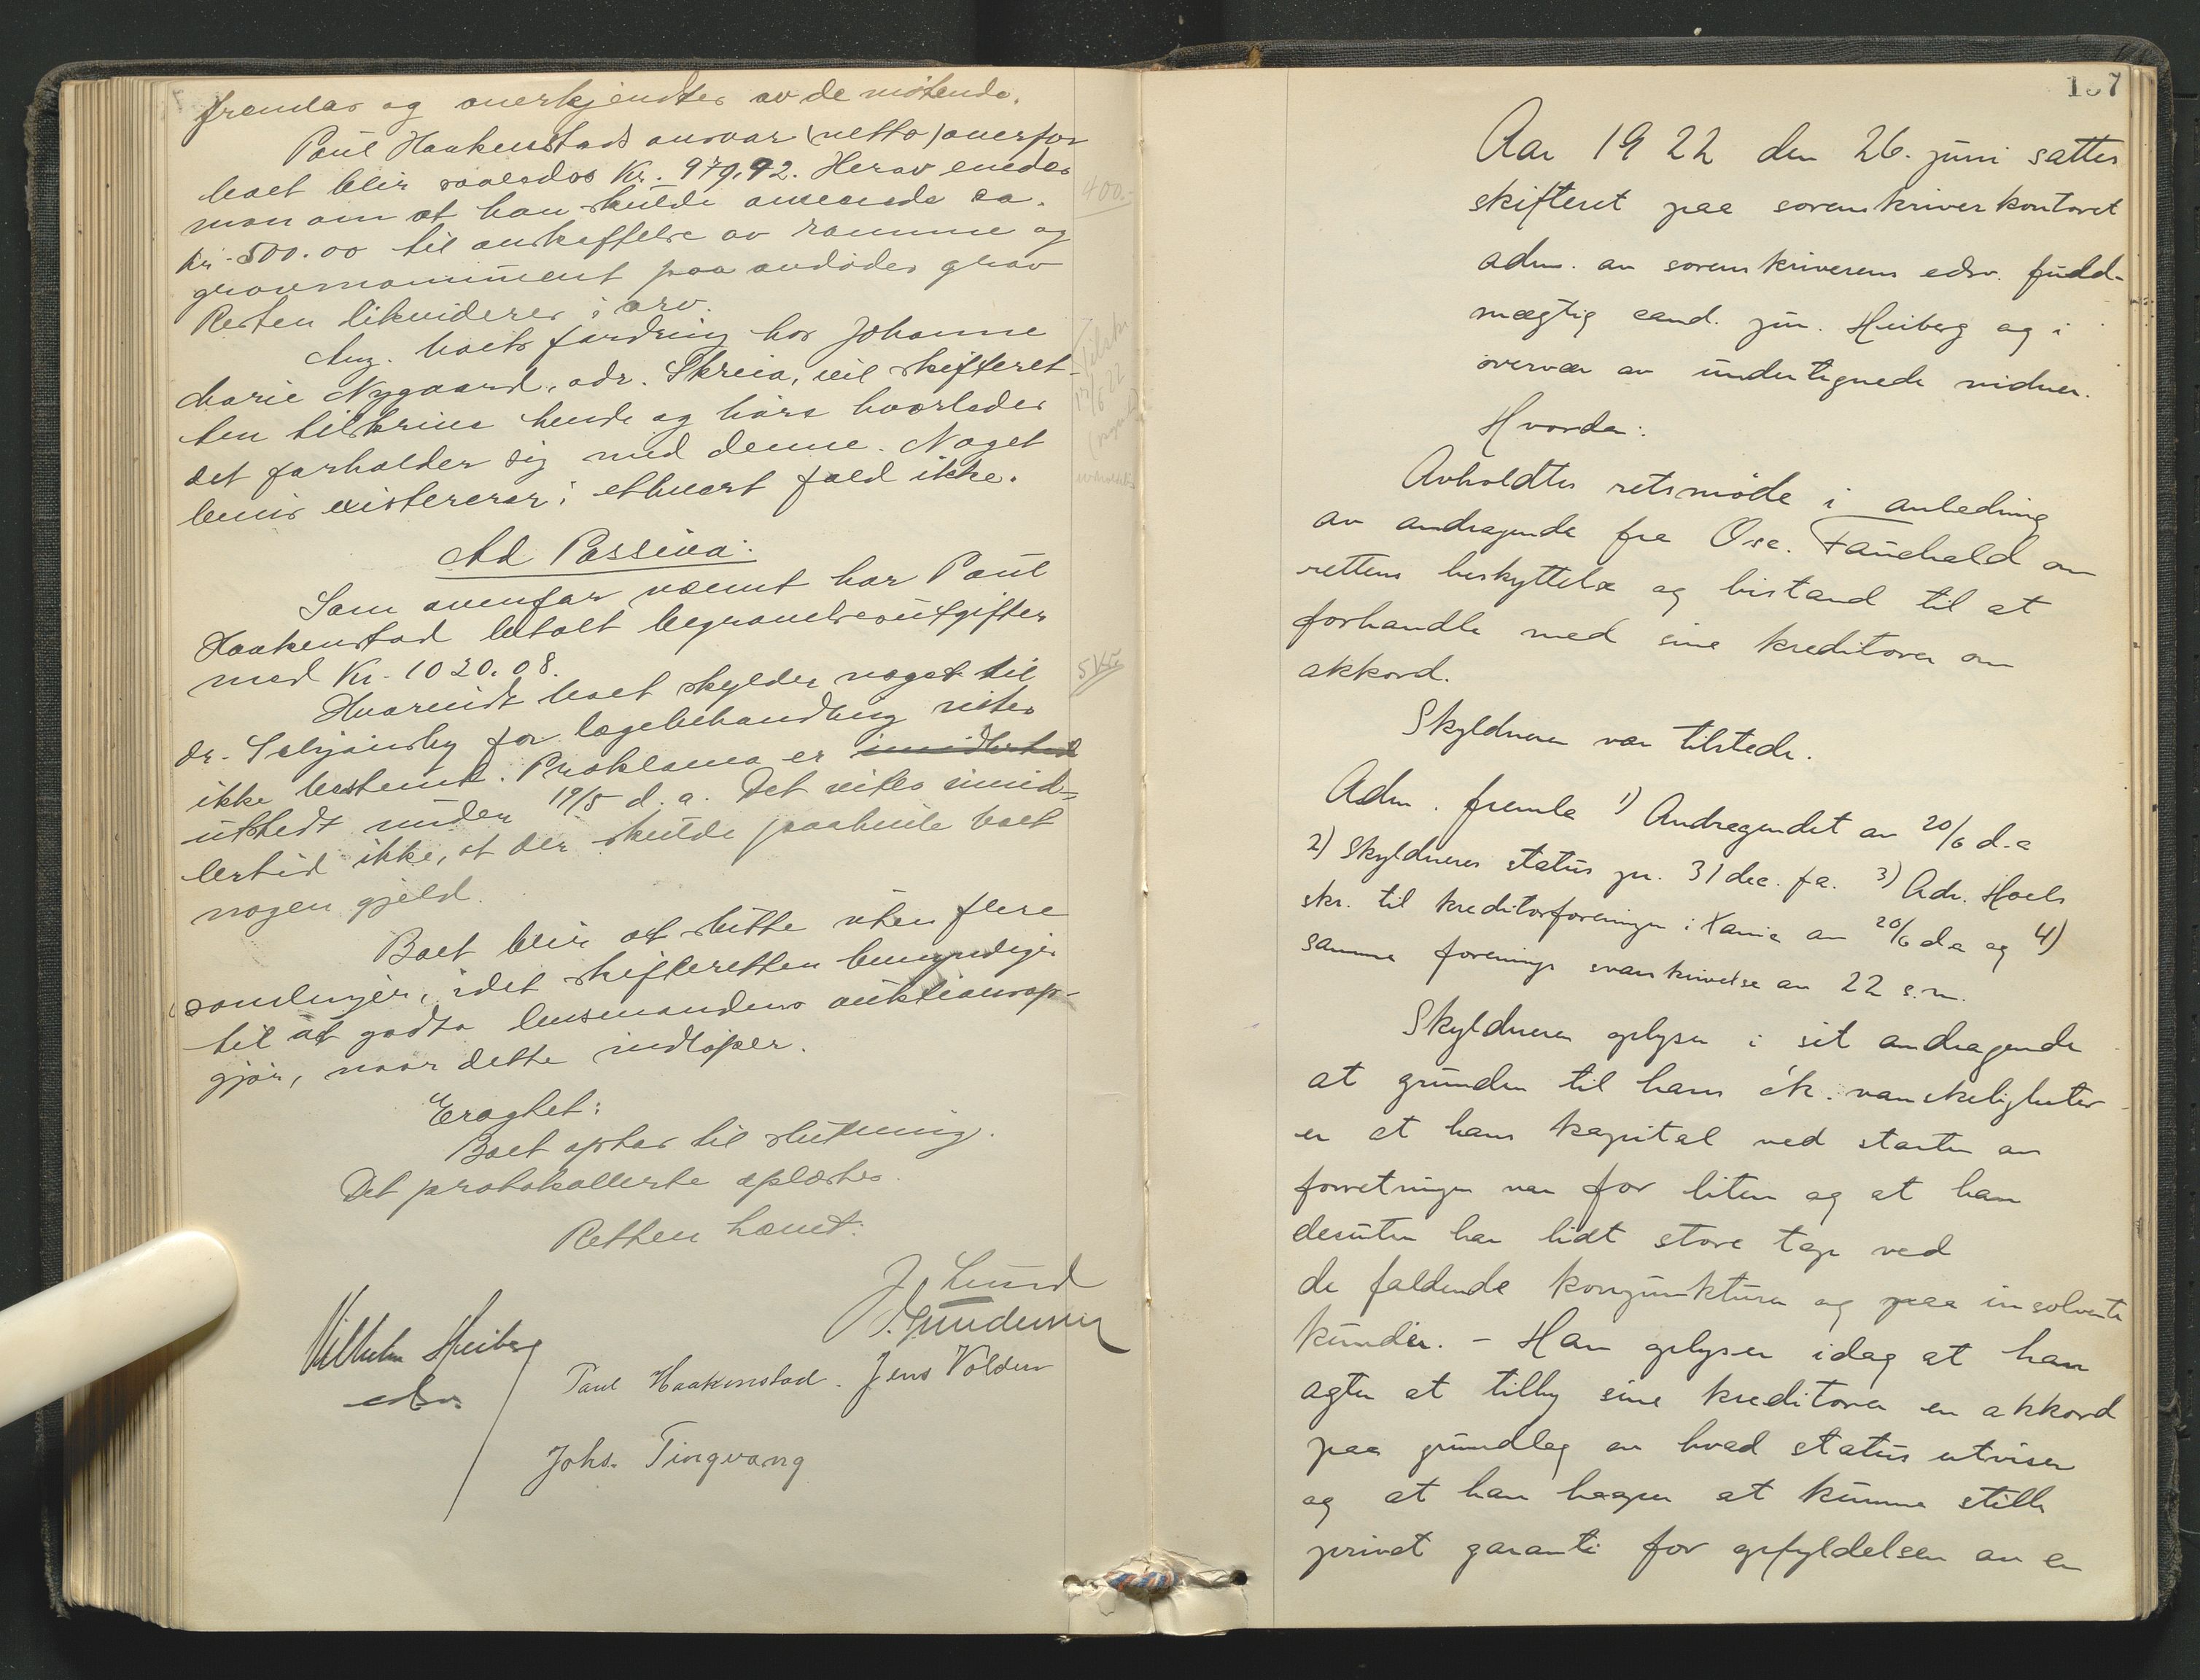 fremlas og anerkjendtes av de møtende.
Paul Haakenstads ansvar (netto) overfor
boet blir saaledes Kr. 979,92. Herav enedes
man om at han skulde anvende ca.
Kr. 500.00 til anskaffelse av ramme og
gravmonument paa avdødes grav
Resten likvideres i arv.
Ang. boets fordring hos Johanne
Marie Nygaard, adr. Skreia, vil skifteret-
ten tilskrive hende og høre hvorledes
det forholder sig med denne. Noget
bevis existerer i ethvert fald ikke.
Ad Passiva:
Som ovenfor nævnt har Paul
Haakenstad betalt begravelsesutgifter
med Kr. 1020.08.
Hvorvidt boet skylder noget til
dr. for lægebehandling vites
ikke bestemt. Proklama er imidlertid
utstedt under 19/5 d. a. Det vites imid=
lertid ikke, at der skulde paahvile boet
nogen gjeld.
Boet blir at slutte uten flere
samlinger, idet skifteretten bemyndiges
til at godta lensmandens auktionsop-
gjør, naar dette indløper.
Eragtet:
Boet optas til slutning.
Det protokollerte oplæstes.
Retten hævet:
J. Lund
Vilhelm Heiberg
edsv.
S. Gundersen
Paul Haakenstad. Jens Volden
Johs. Tingvang
400.-
137
Aar 1922 den 26. juni sattes
skifteret paa sorenskriverkontoret
adm. av sorenskriverens edsv. fuld-
mægtig cand. jur. Heiberg og i
overvær av undertegnede vidner.
Hvorda:
Avholdtes retsmøde i anledning
av andragende fra Osc. Fauchald om
rettens beskyttelse og bistand til at
forhandle med sine kreditorer om
akkord.
Skyldneren var tilstede.
Adm. fremla 1) Andragendet av 20/6 d.a
2) Skyldneres status pr. 31 dec. f.a. 3) Adv. Hoels
skr. til kreditorforeningen i Xania av 20/6 d.a og 4)
samme forenings svarskrivelse av 22 s.m.
Skyldneren oplyser i sit andragende
at grunden til hans øk. vanskeligheter
er at hans kapital ved starten av
forretningen var for liten og at han
desuten har lidt store tap ved
de faldende konjunkturer og paa insolvente
kunder. - Han oplyser idag at han
agter at tilby sine kreditorer en akkord
paa grundlag av hvad status utviser
og at han haaper at kunne stille
privat garanti for opfyldelsen av en